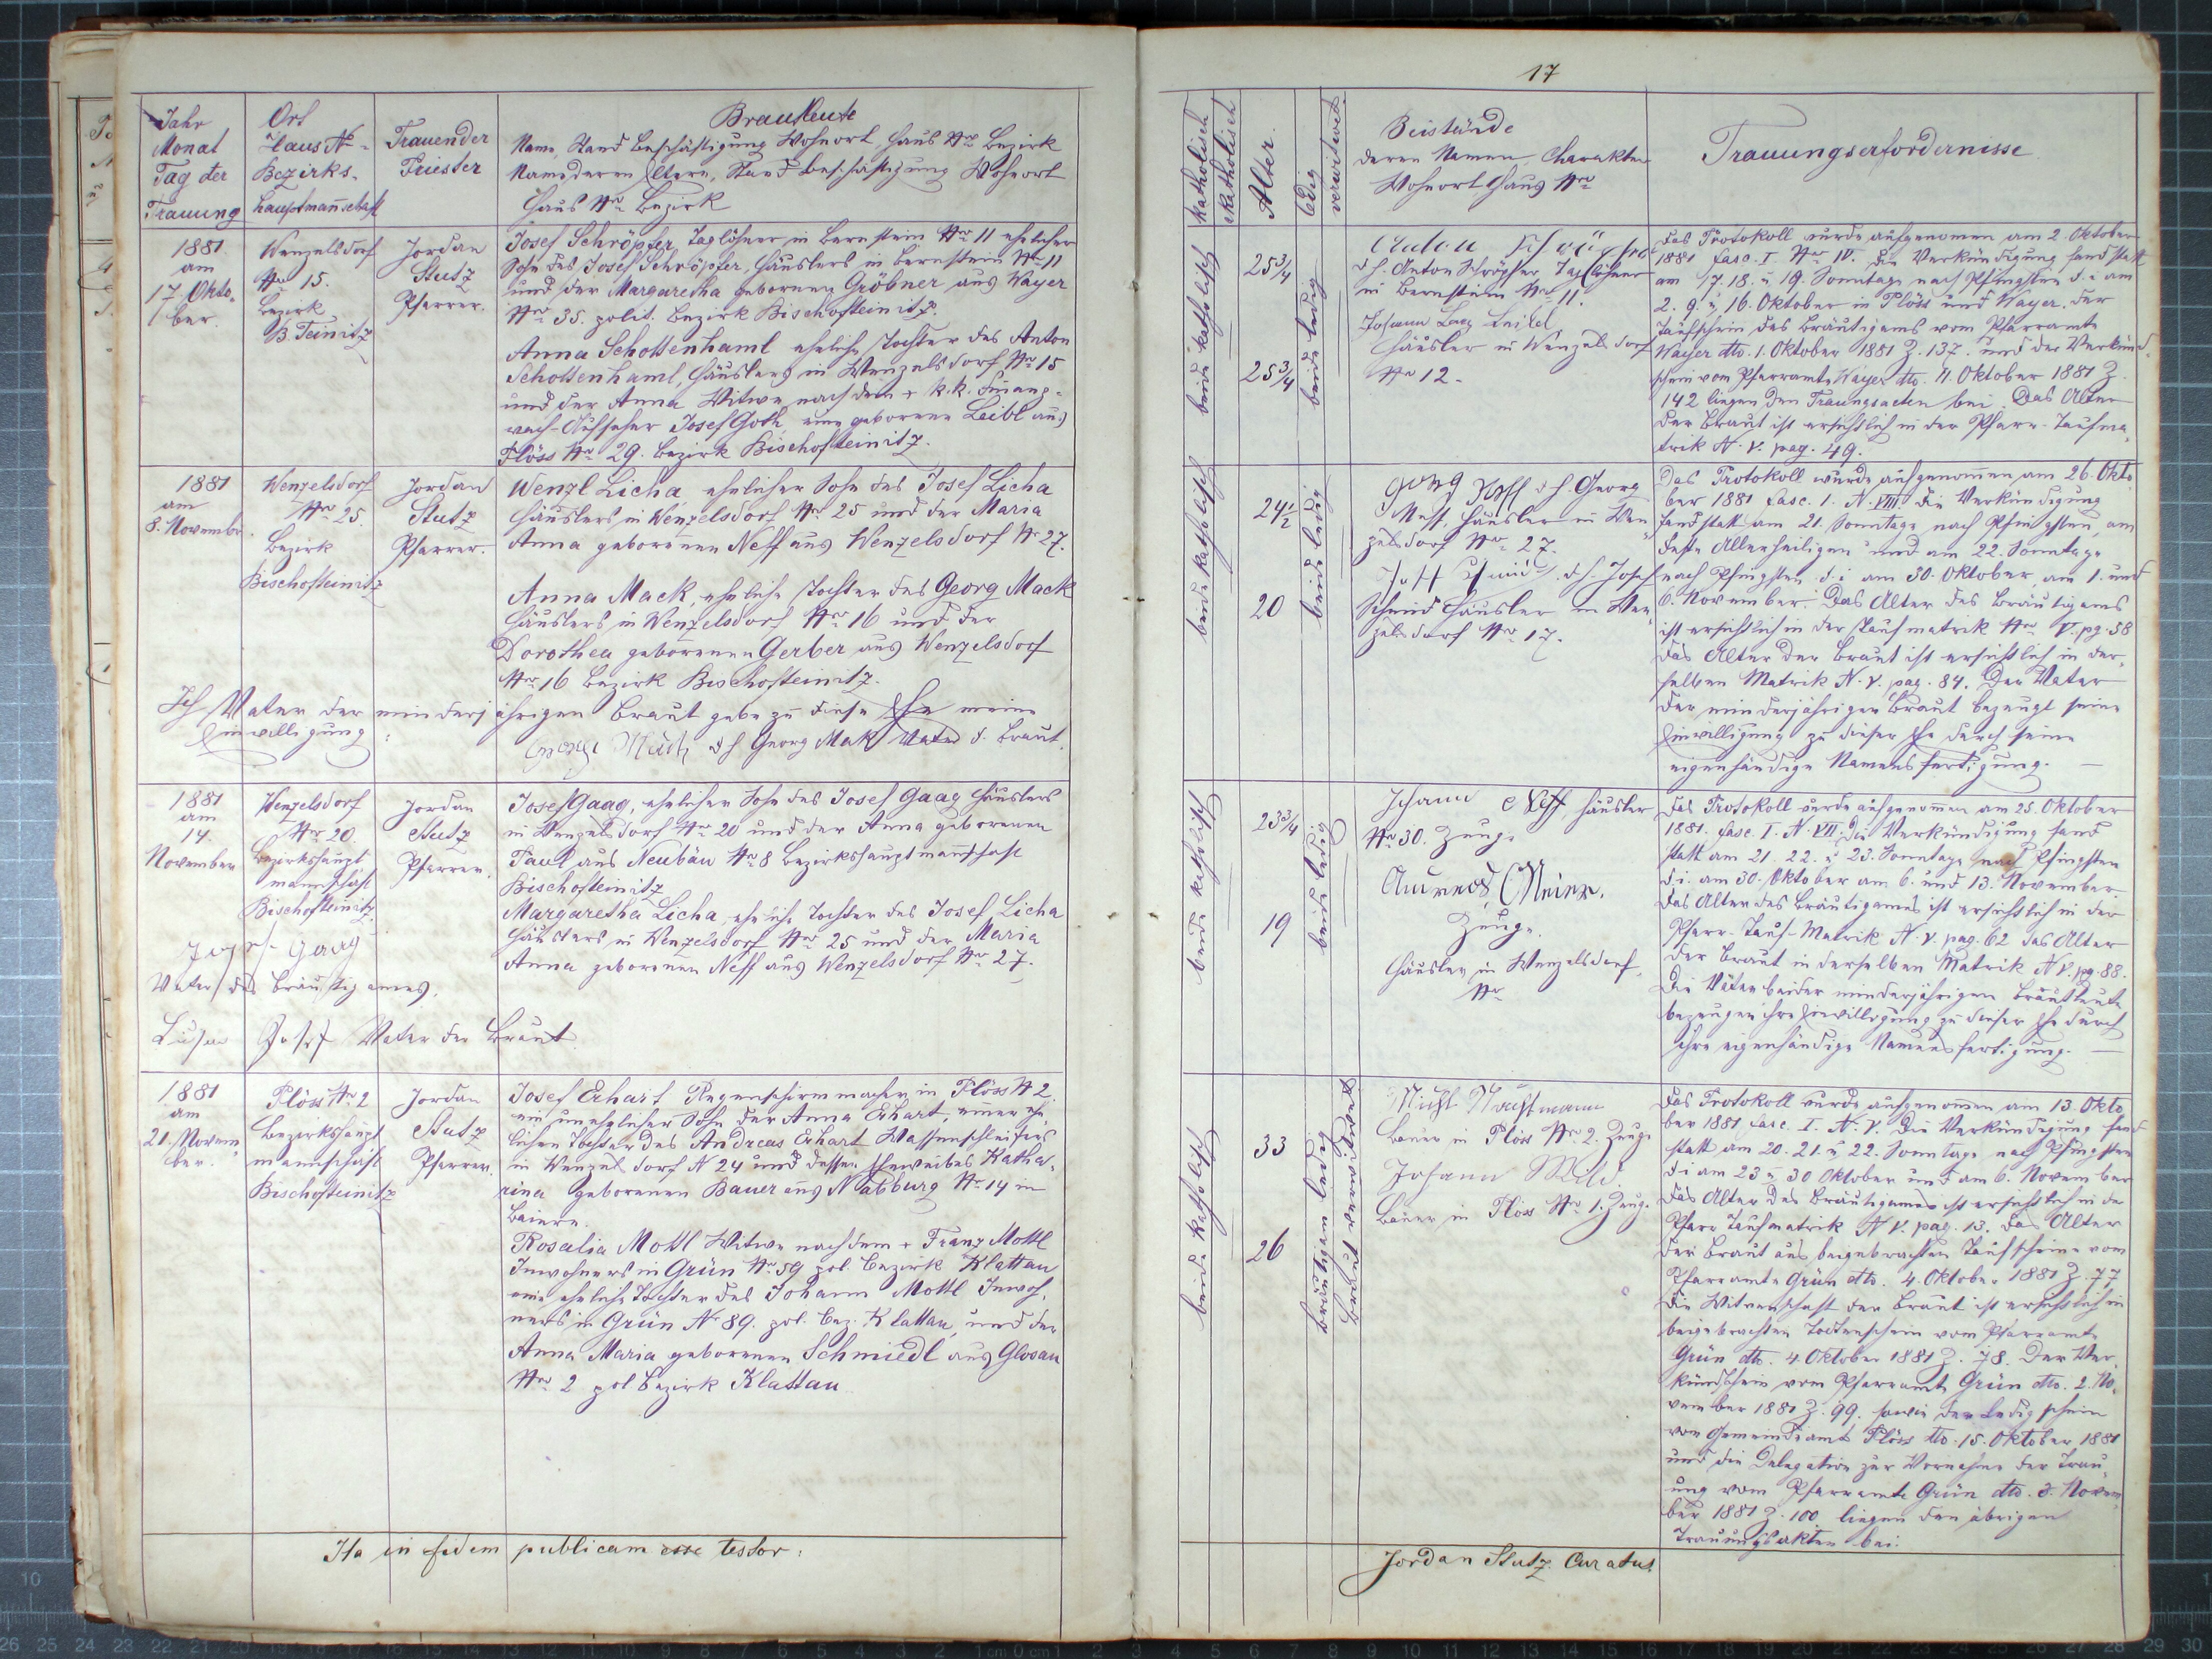 17
Jahr
Monat
Tag der
Trauung
Ort
Haus No
Bezirks-
hauptmanschaft
Trauender
Priester
Brautleute
Name, Stand Beschäftigung Wohnort, Haus Nro Bezirk
Name deren Eltern, Stand Beschäftigung Wohnort
Haus Nro Bezirk
katholisch
akatholisch
Alter.
ledig
verwitwet.
Beistände
deren Namen, Charakter
Wohnort Haus Nro
Trauungserfordernisse
1881
am
17. Okto-
ber.
Wenzelsdorf
Nro 15.
Bezirk
B. Teinitz
Jordan
Stutz
Pfarrer.
Josef Schröpfer, Taglöhner in Bernstein Nro 11 ehelicher
Sohn des Josef Schröpfer, Häuslers in Bernstein Nro 11
und der Margaretha geborenen Gröbner aus Wayer
Nro 35. polit. Bezirk Bischofteinitz.
Anna Schottenhaml eheliche Tochter des Anton
Schottenhaml, Häuslers in Wenzelsdorf Nro 15
und der Anna Witwe nach dem + k.k. Finanz-
wach-Aufseher Josef Goth, eine geborene Leibl aus
Plöss Nro 29. Bezirk Bischofteinitz.
beide katholisch
25 3/4
25 3/4
beide ledig
Anton
d.h. Anton Schröpfer Taglöhner
in Bernstein Nro 11.
Johann
Häusler in Wenzelsdorf
Nro 12.
Das Protokoll wurde aufgenomen am 2. Oktober
1881 fasc. I Nro IV. Die Verkündigung fand statt
am 17. 18. u 19. Sonntage nach Pfingsten d. i. am
2. 9. u 16. Oktober in Plöss und Wayer. Der
Taufschein des Bräutigams vom Pfarramte
Wayer dto. 1. Oktober 1881 Z. 137. und der Verkünd-
schein vom Pfarramte Wayer dto. 11. Oktober 1881 Z.
142 liegen den Trauungsacten bei. Das Alter
der Braut ist ersichtlich in der Pfarr-Taufma-
trik N. V. pag. 49.
1881
am
8. November.
Wenzelsdorf
Nro 25.
Bezirk
Bischofteinitz
Jordan
Stutz
Pfarrer.
Wenzl Licha, ehelicher Sohn des Josef Licha
Häuslers in Wenzelsdorf Nro 25 und der Maria
Anna geborenen Neff aus Wenzelsdorf N 27.
Anna Mack, eheliche Tochter des Georg Mack
Häuslers in Wenzelsdorf Nro 16 und der
Dorothea geborenen Gerber aus Wenzelsdorf
Nro 16 Bezirk Bischofteinitz.
Ich Vater der minderjährigen Braut gebe zu dieser Ehe meine
Einwilligung:
d h Georg Mak Vater d. Braut.
beide katholisch
24 1/2
20
beide ledig
Georg Neff d. h. Georg
Neff, Häusler in Wen-
zelsdorf Nro 27.
d. h. Josef
Schmid Häusler in Wen-
zelsdorf Nro 17.
Das Protokoll wurde aufgenommen am 26. Okto-
ber 1881 fasc. 1. N. VIII. Die Verkündigung
fand statt am 21. Sonntage nach Pfingsten, am
Feste Allerheiligen und am 22. Sonntage
nach Pfingsten d. i. am 30. Oktober, am 1. und
6. November. Das Alter des Bräutigams
ist ersichtlich in der Taufmatrik Nro V. pg. 58
das Alter der Braut ist ersichtlich in der-
selben Matrik N. V. pag. 84. Der Vater
der minderjährigen Braut bezeugt seine
Einwilligung zu dieser Ehe durch seine
eigenhändige Namensfertigung.
1881
am
14.
November
Wenzelsdorf
Nro 20.
Bezirkshaupt
mannschaft
Bischofteinitz.
Jordan
Stutz
Pfarrer.
Josef Gaag, ehelicher Sohn des Josef Gaag Häuslers
in Wenzelsdorf Nro 20 und der Anna geborenen
Paul aus Neubäu Nro 8 Bezirkshauptmannschaft
Bischofteinitz
Margaretha Licha, eheliche Tochter des Josef Licha
Häuslers in Wenzelsdorf Nro 25 und der Maria
Anna geborenen Neff aus Wenzelsdorf Nro 27.
Josef Gaag
Vater des Bräutigames.
Josef Vater der Braut
beide katholisch
23 3/4
19
beide ledig
Johann Neff, Häusler
Nro 30. Zeuge
Andreas Meier.
Zeuge.
Häusler in Wenzelsdorf,
Nro
Das Protokoll wurde aufgenomen am 25. Oktober
1881. fasc. I. N. VII. Die Verkündigung fand
statt am 21. 22. u 23. Sonntage nach Pfingsten
d. i. am 30. Oktober am 6. und 13. November
Das Alter des Bräutigames ist ersichtlich in der
Pfarr-Tauf-Matrik N. V. pag. 62 das Alter
der Braut in derselben Matrik N V. pg. 88.
Die Väter beider minderjährigen Brautleute
bezeugen ihre Einwilligung zu dieser Ehe durch
ihre eigenhändige Namensfertigung.
1881
am
21. Novem-
ber.
Plöss Nro 2
Bezirkshaupt
mannschaft
Bischofteinitz
Jordan
Stutz
Pfarrer.
Josef Erhart Regenschirmmacher in Plöss N 2.
ein unehelicher Sohn der Anna Erhart, einer ehe-
lichen Tochter des Andreas Erhart Waffenschleifers
in Wenzelsdorf N 24 und dessen Eheweibes Katha-
rina geborenen Bauer aus Nabburg Nro 14 in
Baiern.
Rosalia Mottl Witwe nach dem + Franz Mottl
Inwohners in Grün Nro 59 pol. Bezirk Klattau
eine eheliche Tochter des Johann Mottl Inwoh-
ners in Grün No 89. pol. Bez. Klattau, und der
Anna Maria geborenen Schmiedl aus Glosau
Nro 2 pol Bezirk Klattau
beide katholisch
33
26
Bräutigam ledig
Braut verwitwet
Bauer in Plöss Nro 2. Zeuge
Johann
Bauer in Plöss Nro 1. Zeuge.
Das Protokoll wurde aufgenommen am 13. Okto-
ber 1881 fasc. I. N. V. Die Verkündigung fand
statt am 20. 21. u 22. Sonntage nach Pfingsten
d i am 23 u 30 Oktober und am 6. November
Das Alter des Bräutigames ist ersichtlich in der
Pfarr Taufmatrik N V. pag. 13. Das Alter
der Braut aus beigebrachten Taufscheine vom
Pfarramte Grün dto. 4. Oktober 1881 Z. 77
Die Witwenschaft der Braut ist ersichtlich in
beigebrachten Todtenschein vom Pfarramte
Grün dto. 4. Oktober 1881 Z. 78. Der Ver-
kündschein vom Pfarramte Grün dto. 2. No-
vember 1881 Z. 99. sowie der Ledigschein
von Gemeindeamt Plöss dto. 15. Oktober 1881
und die Delegation zur Vornahme der Trau-
ung vom Pfarramte Grün dto. 3. Novem-
ber 1881 Z. 100 liegen den übrigen
Trauungsakten bei.
Ita in fidem publicam esse testor:
Jordan Stutz. Curatus